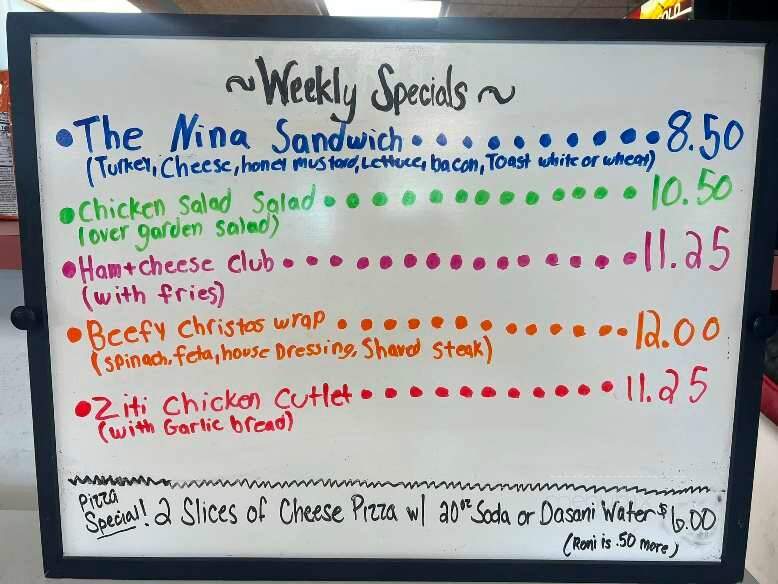 ~Weekly Specials~
•The Nina Sandwich..........8.50
(Turkey, Cheese, honey mustard, Lettuce, bacon, Toast white or wheat)
•Chicken Salad Salad..............10.50
(over garden salad)
•Ham+cheese Club...............11.25
(with fries)
•Beefy Christos wrap.............12.00
(spinach, feta, house Dressing, Shaved Steak)
•Ziti Chicken Cutlet............11.25
(with Garlic bread)
Pizza Special! 2 Slices of Cheese Pizza w/ 20oz Soda or Dasani Water $6.00
(Roni is .50 more)